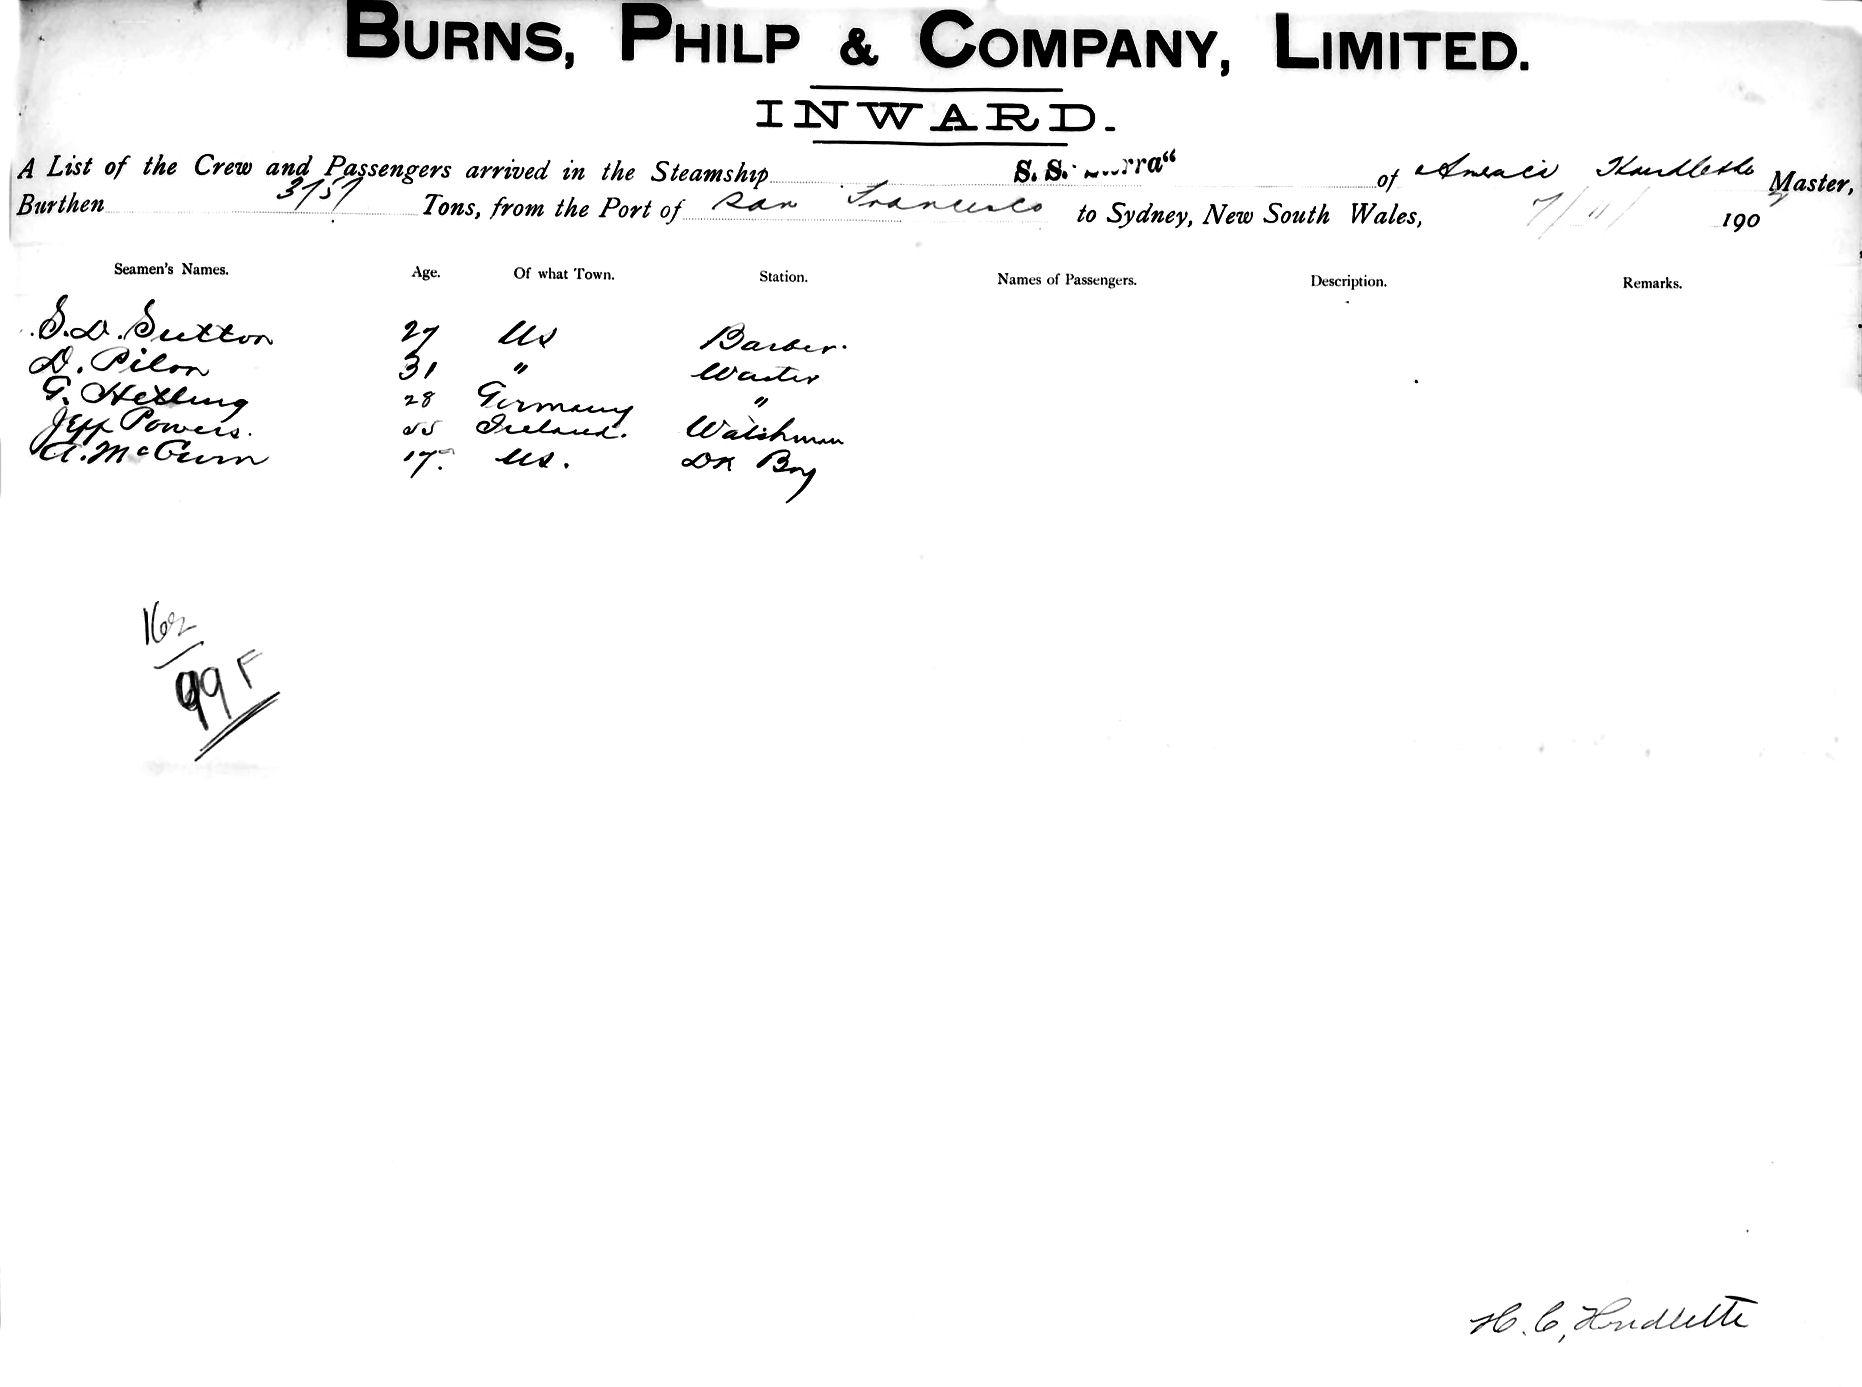 BURNS, PHILP & COMPANY, LIMITED.
INWARD.
A List of the Crew and Passengers arrived in the Steamship S. S. of Master,
Burthen 3757 Tons, from the Port of San Francisco to Sydney, New South Wales, 7/11/ 190
Seamen's Names. Age. Of what Town. Station. Names of Passengers. Description. Remarks.
S. D. Sutton 27 US Barber.
D. Pilon 31 " Waiter
G. 28 Germany "
Jeff Powers. 55 Ireland. Watchman
A. McGurn 17. US. DK Boy
162
99 F
H. C. Houdlette